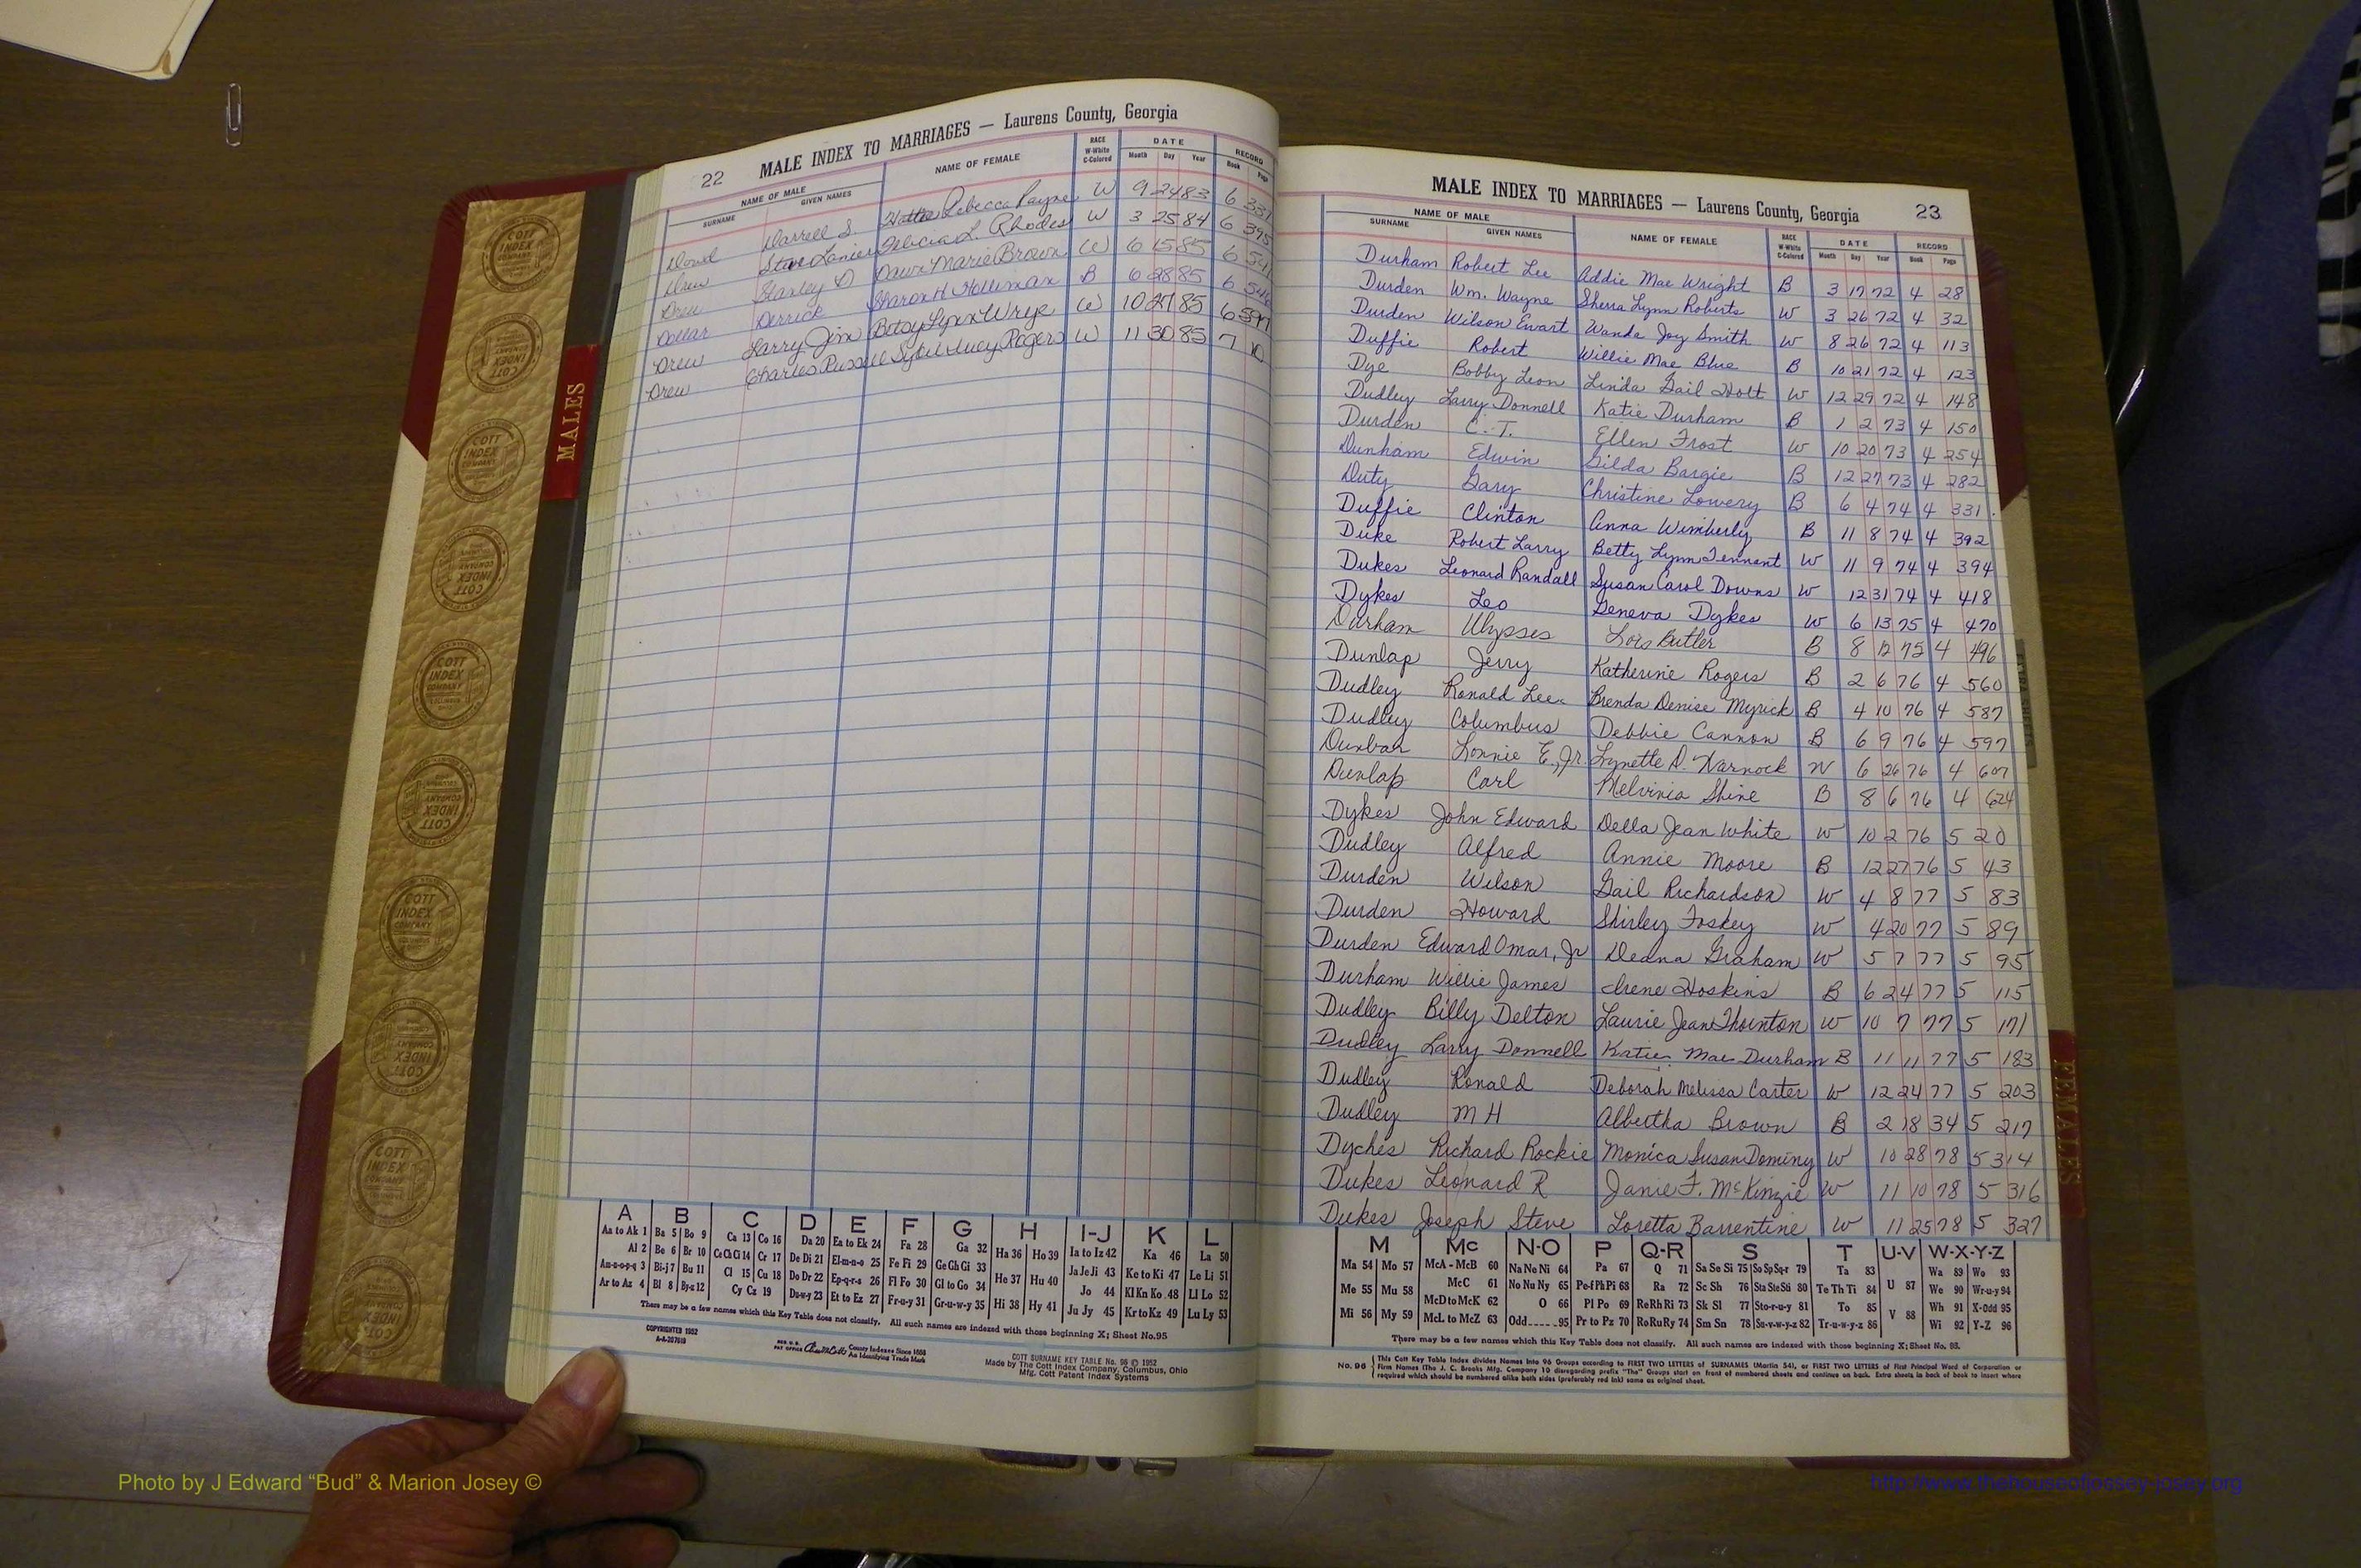 22 MALE INDEX TO MARRIAGES — Laurens County, Georgia
NAME OF MALE NAME OF FEMALE RACE DATE RECORD
SURNAME GIVEN NAMES W-White C-Colored Month Day Year Book Page
Dowd Darrell S. Hattie Rebecca Payne W 9 24 83 6 331
Drew Steve Lanier Felicia L. Rhodes W 3 25 84 6 395
Drew Stanley D Dawn Marie Brown W 6 15 85 6
Dollar Derrick Sharon H Holliman B 6 28 85 6
Drew Larry Jim Betsy Lynn Wrye W 10 27 85 6
Drew Charles Russell Sybil Lucy Rogers W 11 30 85 7 10
MALES
A B C D E F G H I-J K L
Aa to Ak 1 Ba 5 Bo 9 Ca 13 Co 16 Da 20 Ea to Ek 24 Fa 28 Ga 32 Ha 36 Ho 39 Ia to Iz 42 Ka 46 La 50
Al 2 Be 6 Br 10 Ce Ch Ci 14 Cr 17 De Di 21 El-m-n-o 25 Fe Fi 29 Ge Gh Gi 33 He 37 Hu 40 Ja Je Ji 43 Ke to Ki 47 Le Li 51
Am-n-o-p-q 3 Bi-j 7 Bu 11 Cl 15 Cu 18 Do Dr 22 Ep-q-r-s 26 Fl Fo 30 Gl to Go 34 Hi 38 Hy 41 Jo 44 Kl Kn Ko 48 Ll Lo 52
Ar to Az 4 Bl 8 By-z 12 Cy Cz 19 Du-w-y 23 Et to Ez 27 Fr-u-y 31 Gr-u-w-y 35 Ju Jy 45 Kr to Kz 49 Lu Ly 53
There may be a few names which this Key Table does not classify. All such names are indexed with those beginning X; Sheet No. 95
COPYRIGHTED 1952
County Indexes Since 1888
An Identifying Trade Mark
COTT SURNAME KEY TABLE No. 96 © 1952
Made by The Cott Index Company, Columbus, Ohio
Mfg. Cott Patent Index Systems
MALE INDEX TO MARRIAGES — Laurens County, Georgia 23
NAME OF MALE NAME OF FEMALE RACE DATE RECORD
SURNAME GIVEN NAMES W-White C-Colored Month Day Year Book Page
Durham Robert Lee Addie Mae Wright B 3 17 72 4 28
Durden Wm. Wayne Sherra Lynn Roberts W 3 26 72 4 32
Durden Wilson Ewart Wanda Joy Smith W 8 26 72 4 113
Duffie Robert Willie Mae Blue B 10 21 72 4 123
Dye Bobby Leon Linda Gail Holt W 12 29 72 4 148
Dudley Larry Donnell Katie Durham B 1 2 73 4 150
Durden C. T. Ellen Frost W 10 20 73 4 254
Dunham Edwin Gilda Bargie B 12 27 73 4 282
Duty Gary Christine Lowery B 6 4 74 4 331
Duffie Clinton Anna Wimberly B 11 8 74 4 392
Duke Robert Larry Betty Lynn Tennant W 11 9 74 4 394
Dukes Leonard Randall Susan Carol Downs W 12 31 74 4 418
Dykes Leo Geneva Dykes W 6 13 75 4 470
Durham Ulysses Lois Butler B 8 12 75 4 496
Dunlap Jerry Katherine Rogers B 2 6 76 4 560
Dudley Ronald Lee Brenda Denise Myrick B 4 10 76 4 587
Dudley Columbus Debbie Cannon B 6 9 76 4 597
Dunbar Lonnie E., Jr. Lynette D. Warnock W 6 26 76 4 607
Dunlap Carl Melvinia Shine B 8 6 76 4 624
Dykes John Edward Della Jean White W 10 2 76 5 20
Dudley Alfred Annie Moore B 12 27 76 5 43
Durden Wilson Gail Richardson W 4 8 77 5 83
Durden Howard Shirley Foskey W 4 20 77 5 89
Durden Edward Omar, Jr Deana Graham W 5 7 77 5 95
Durham Willie James Irene Hoskins B 6 24 77 5 115
Dudley Billy Delton Laurie Jean Thornton W 10 7 77 5 171
Dudley Larry Donnell Katie Mae Durham B 11 11 77 5 183
Dudley Ronald Deborah Melissa Carter W 12 24 77 5 203
Dudley M H Albertha Brown B 2 18 34 5 217
Dyches Richard Rockie Monica Susan Dominy W 10 28 78 5 314
Dukes Leonard R Janie F. McKinzie W 11 10 78 5 316
Dukes Joseph Steve Loretta Barrentine W 11 25 78 5 327
M Mc N-O P Q-R S T U-V W-X-Y-Z
Ma 54 Mo 57 McA - McB 60 Na Ne Ni 64 Pa 67 Q 71 Sa Se Si 75 So Sp Sq-r 79 Ta 83 Wa 89 Wo 93
Me 55 Mu 58 McC 61 No Nu Ny 65 Pe-f Ph Pi 68 Ra 72 Sc Sh 76 Sta Ste Sti 80 Te Th Ti 84 U 87 We 90 Wr-u-y 94
McD to McK 62 O 66 Pl Po 69 Re Rh Ri 73 Sk Sl 77 Sto-r-u-y 81 To 85 Wh 91 X-Odd 95
Mi 56 My 59 McL to McZ 63 Odd 95 Pr to Pz 70 Ro Ru Ry 74 Sm Sn 78 Su-v-w-y-z 82 Tr-u-w-y-z 86 V 88 Wi 92 Y-Z 96
There may be a few names which this Key Table does not classify. All such names are indexed with those beginning X; Sheet No. 95.
No. 96 This Cott Key Table Index divides Names into 96 Groups according to FIRST TWO LETTERS of SURNAMES (Martin 54), or FIRST TWO LETTERS of First Principal Word of Corporation or
Firm Names (The J. C. Brooks Mfg. Company 10 disregarding prefix "The" Groups start on front of numbered sheets and continue on back. Extra sheets in back of book to insert where
required which should be numbered alike both sides (preferably red ink) same as original sheet.
FEMALES
Photo by J Edward “Bud” & Marion Josey ©
http://www.thehouseofjossey-josey.org